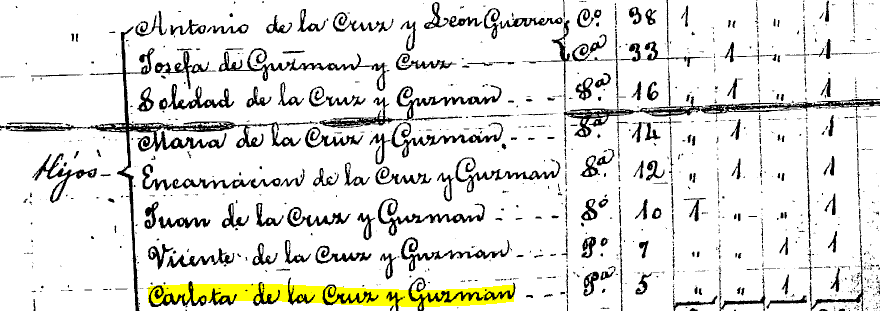 " Antonio de la Cruz y León Guerrero C.º 38 1 " " 1
Josefa de Guzman y Cruz C.ª 33 " 1 " 1
Soledad de la Cruz y Guzman S.ª 16 " 1 " 1
Maria de la Cruz y Guzman S.ª 14 " 1 " 1
Hijos Encarnacion de la Cruz y Guzman S.ª 12 " 1 " 1
Juan de la Cruz y Guzman S.º 10 1 " " 1
Vicente de la Cruz y Guzman P.º 7 " " 1 1
Carlota de la Cruz y Guzman P.ª 5 " " 1 1